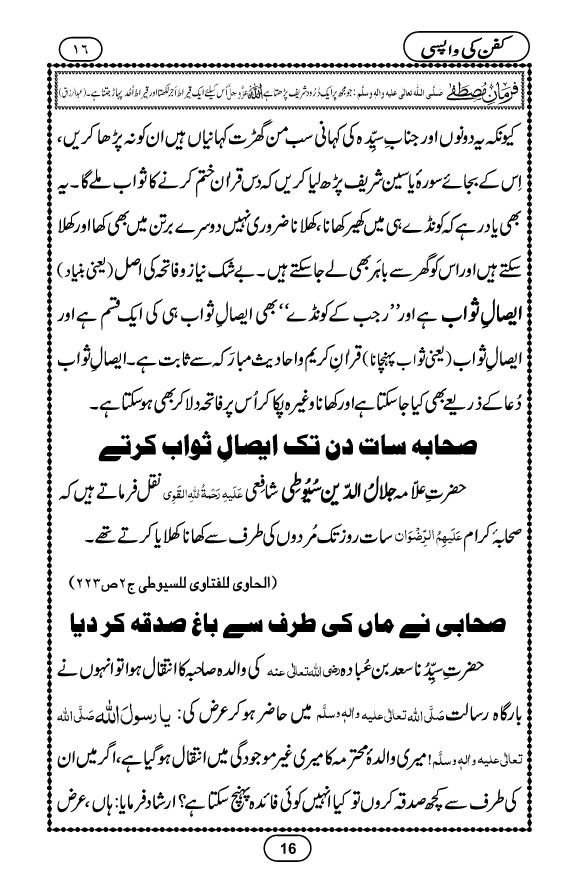 کفن کی واپسی
۱٦
فرمانِ مصطفٰے صلَّی اللہ تعالٰی علیہ والہٖ وسلَّم : جو مجھ پر ایک دُرُود شریف پڑھتا ہے اللہ عزَّوجلَّ اُس کیلئے ایک قیراط اَجر لکھتا اور قیراط اُحُد پہاڑ جتنا ہے۔ (عبدالرزاق)
کیونکہ یہ دونوں اور جنابِ سیِّدہ کی کہانی سب من گھڑت کہانیاں ہیں ان کو نہ پڑھا کریں،
اِس کے بجائے سورۂ یاسین شریف پڑھ لیا کریں کہ دس قراٰن ختم کرنے کا ثواب ملے گا۔ یہ
بھی یاد رہے کہ کونڈے ہی میں کھیر کھانا، کھلانا ضروری نہیں دوسرے برتن میں بھی کھا اور کھلا
سکتے ہیں اور اس کو گھر سے باہَر بھی لے جا سکتے ہیں۔ بے شک نیاز و فاتحہ کی اصل (یعنی بنیاد)
ایصالِ ثواب ہے اور ’’رجب کے کونڈے‘‘ بھی ایصالِ ثواب ہی کی ایک قسم ہے اور
ایصالِ ثواب (یعنی ثواب پہنچانا) قراٰنِ کریم و احادیثِ مبارَکہ سے ثابت ہے۔ ایصالِ ثواب
دُعا کے ذریعے بھی کیا جا سکتا ہے اور کھانا وغیرہ پکا کر اُس پر فاتحہ دلا کر بھی ہو سکتا ہے۔
صحابہ سات دن تک ایصالِ ثواب کرتے
حضرتِ علّامہ جلالُ الدّین سُیُوطِی شافِعی عَلَیہِ رَحمَۃُ اللہِ القَوِی نقل فرماتے ہیں کہ
صحابۂ کرام عَلَیہِمُ الرِّضْوَان سات روز تک مُردوں کی طرف سے کھانا کھلایا کرتے تھے۔
(الحاوی للفتاوی للسیوطی ج۲ص۲۲۳)
صحابی نے ماں کی طرف سے باغ صدقہ کر دیا
حضرتِ سیِّدُنا سعد بن عُبادہ رضی اللہ تعالٰی عنہ کی والدہ صاحبہ کا انتقال ہوا تو انہوں نے
بارگاہِ رسالت صَلَّی اللہ تعالٰی علیہ والہٖ وسلَّم میں حاضر ہو کر عرض کی: یا رسولَ اللہ صَلَّی اللہ
تعالٰی علیہ والہٖ وسلَّم! میری والدۂ محترمہ کا میری غیر موجودگی میں انتقال ہوگیا ہے، اگر میں ان
کی طرف سے کچھ صدقہ کروں تو کیا انہیں کوئی فائدہ پہنچ سکتا ہے؟ ارشاد فرمایا: ہاں، عرض
16